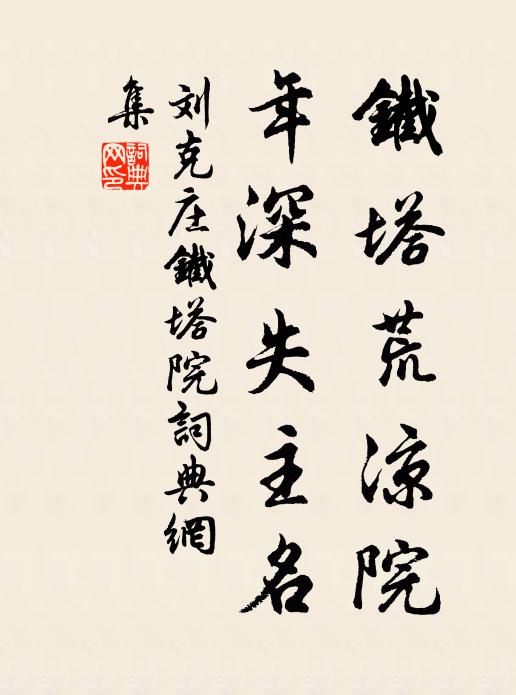 鐵塔荒涼院
年深失主名
刘克庄鐵塔院詞典網
集
詞典網印